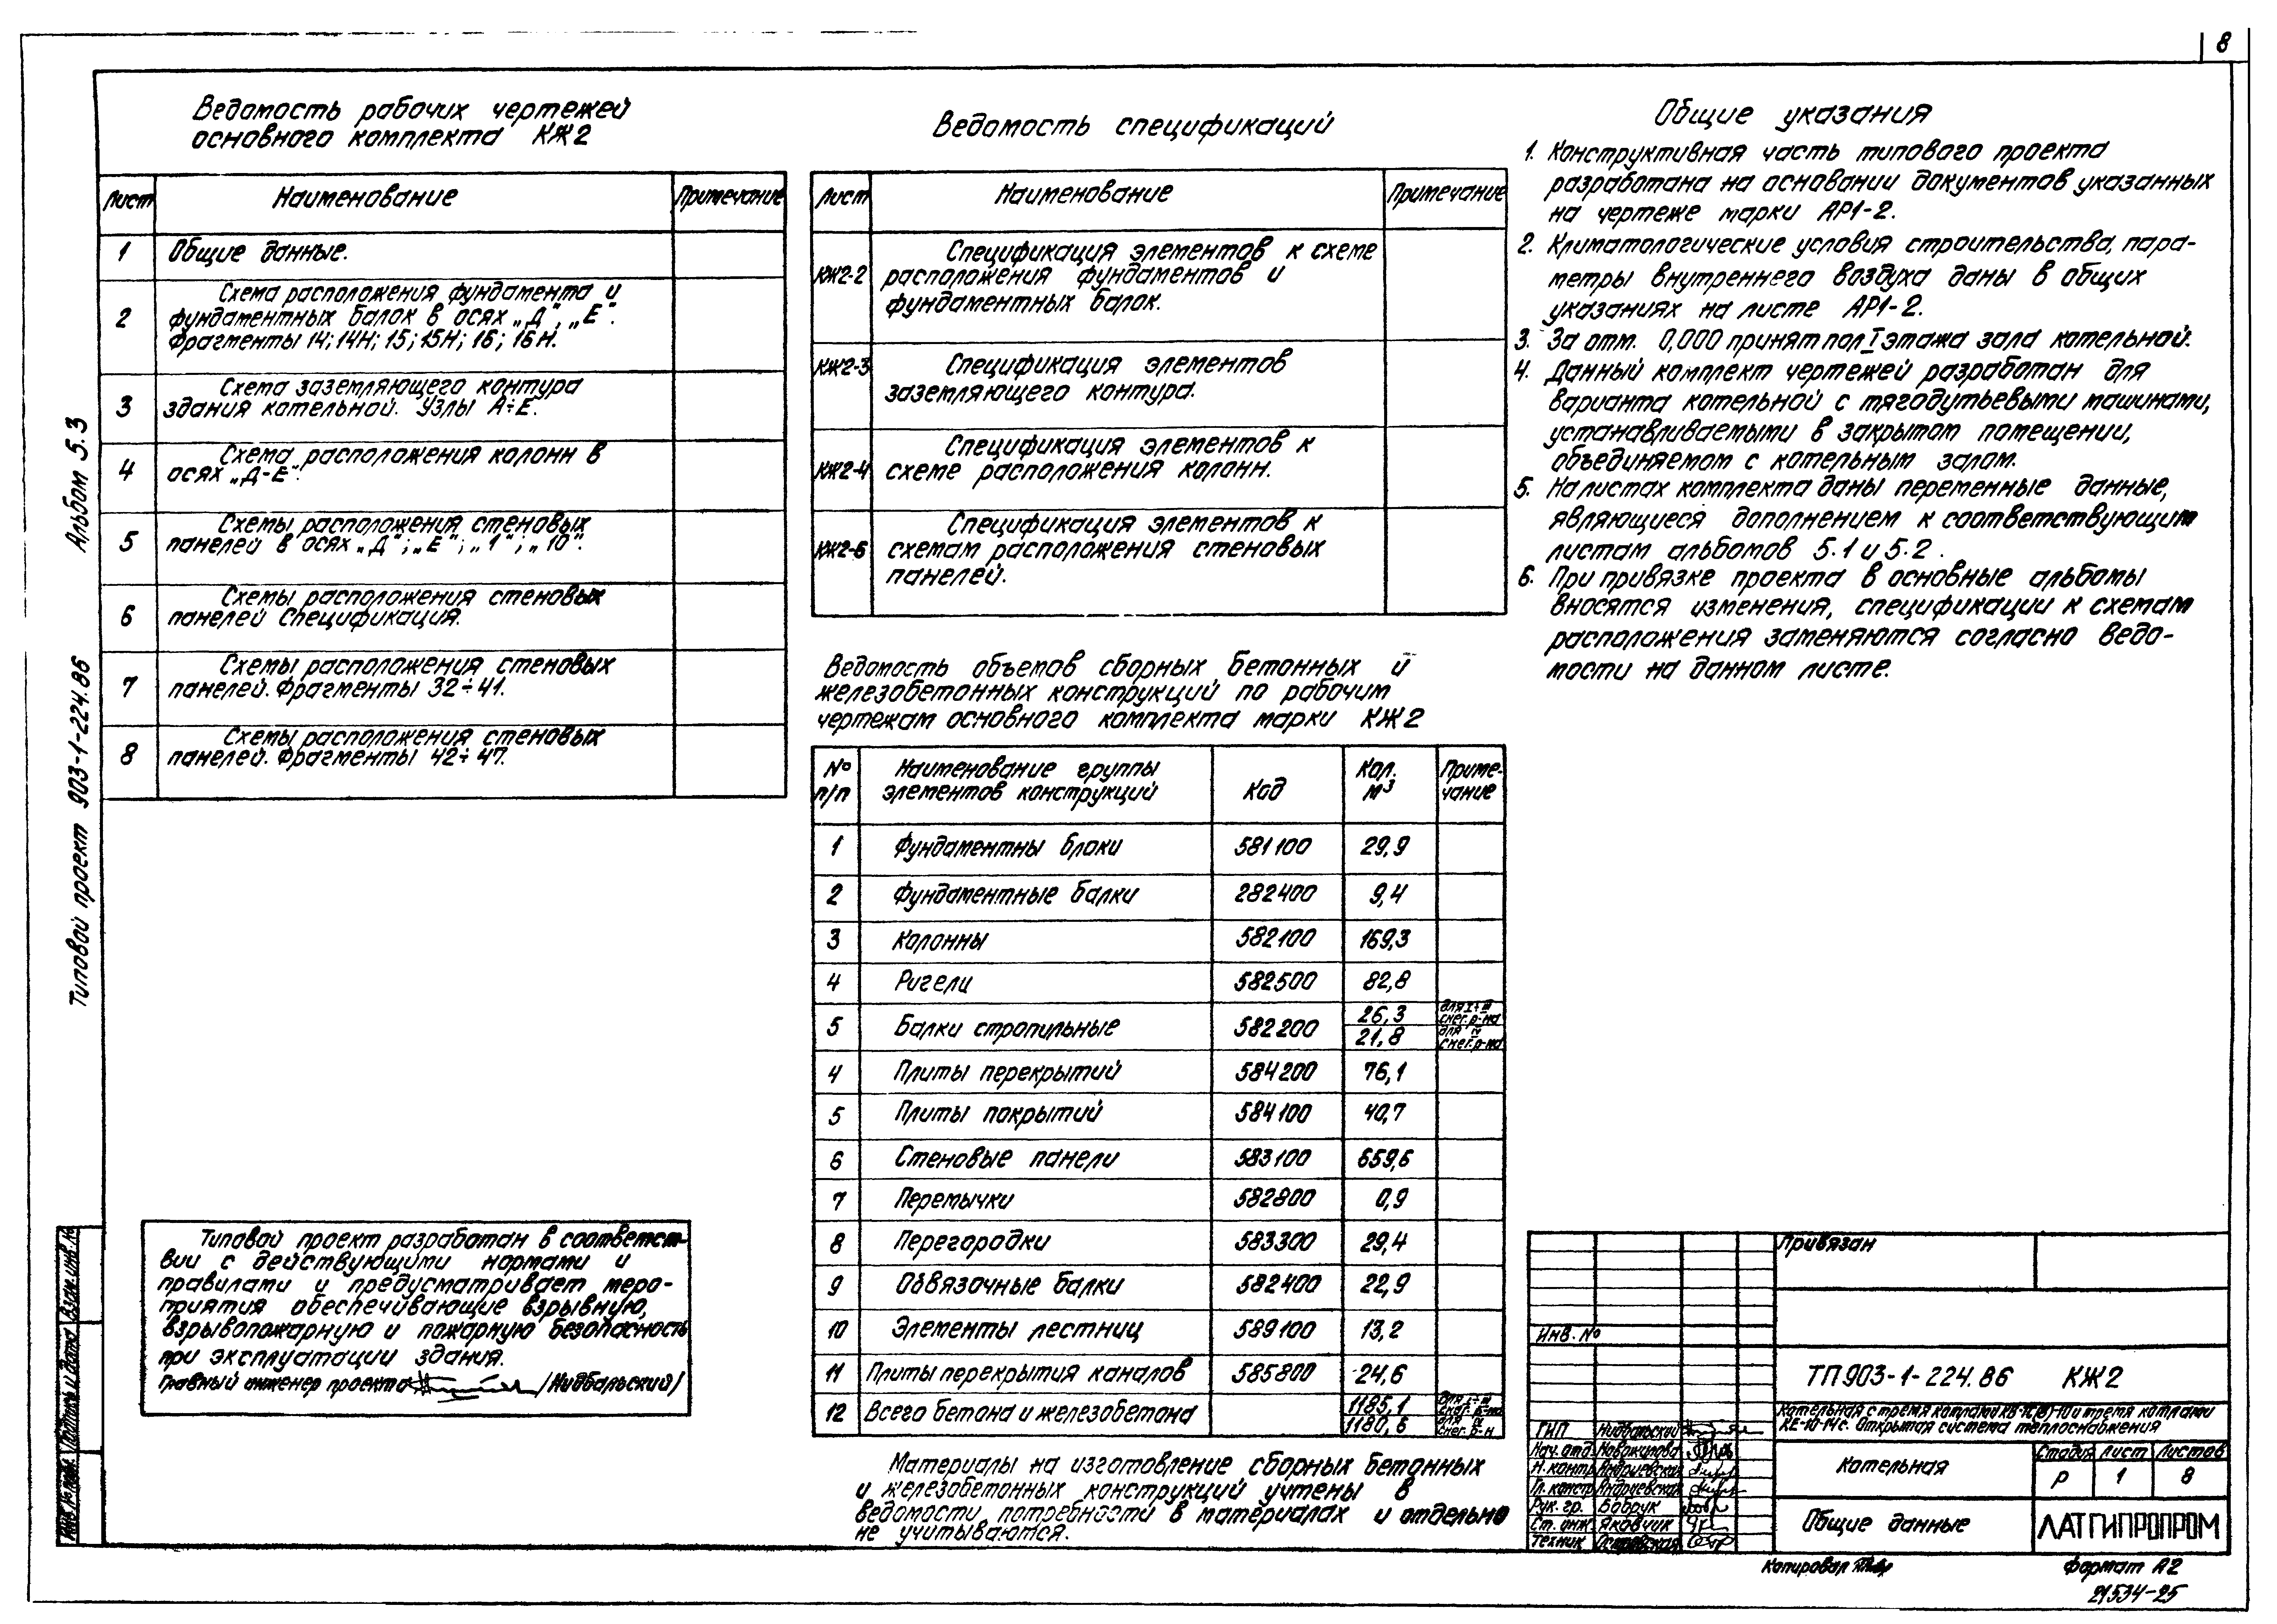 8
Ведомость рабочих чертежей
основного комплекта КЖ2
Лист Наименование Примечание
1 Общие данные.
2 Схема расположения фундамента и
фундаментных балок в осях „Д“; „Е“.
Фрагменты 14; 14н; 15; 15н; 16; 16н.
3 Схема заземляющего контура
здания котельной. Узлы А÷Е.
4 Схема расположения колонн в
осях „Д-Е“.
5 Схемы расположения стеновых
панелей в осях „Д“; „Е“; „1“; „10“.
6 Схемы расположения стеновых
панелей Спецификация.
7 Схемы расположения стеновых
панелей. Фрагменты 32÷41.
8 Схемы расположения стеновых
панелей. Фрагменты 42÷47.
Ведомость спецификаций
Лист Наименование Примечание
КЖ2-2 Спецификация элементов к схеме
расположения фундаментов и
фундаментных балок.
КЖ2-3 Спецификация элементов
заземляющего контура.
КЖ2-4 Спецификация элементов к
схеме расположения колонн.
КЖ2-6 Спецификация элементов к
схемам расположения стеновых
панелей.
Ведомость объемов сборных, бетонных и
железобетонных конструкций по рабочим
чертежам основного комплекта марки КЖ2
№ п/п Наименование группы элементов конструкций Код Кол. м³ Приме-чание
1 Фундаментны блоки 581100 29,9
2 Фундаментные балки 282400 9,4
3 Колонны 582100 169,3
4 Ригели 582500 82,8
5 Балки стропильные 582200 26,3 для I÷III снег. р-на
21,8 для IV снег. р-на
4 Плиты перекрытий 584200 76,1
5 Плиты покрытий 584100 40,7
6 Стеновые панели 583100 659,6
7 Перемычки 582800 0,9
8 Перегородки 583300 29,4
9 Обвязочные балки 582400 22,9
10 Элементы лестниц 589100 13,2
11 Плиты перекрытия каналов 585800 24,6
12 Всего бетона и железобетона 1185,1 для I÷III снег. р-на
1180,6 для IV снег. р-н
Материалы на изготовление сборных бетонных
и железобетонных конструкций учтены в
ведомости потребности в материалах и отдельно
не учитываются.
Общие указания
1. Конструктивная часть типового проекта
разработана на основании документов указанных
на чертеже марки АР1-2.
2. Климатологические условия строительства, пара-
метры внутреннего воздуха даны в общих
указаниях на листе АР1-2.
3. За отм. 0,000 принят пол I этажа зала котельной.
4. Данный комплект чертежей разработан для
варианта котельной с тягодутьевыми машинами,
устанавливаемыми в закрытом помещении,
объединяемом с котельным залом.
5. На листах комплекта даны переменные данные,
являющиеся дополнением к соответствующим
листам альбомов 5.1 и 5.2.
6. При привязке проекта в основные альбомы
вносятся изменения, спецификации к схемам
расположения заменяются согласно ведо-
мости на данном листе.
Типовой проект 903-1-224.86 Альбом 5.3
Типовой проект разработан в соответст-
вии с действующими нормами и
правилами и предусматривает меро-
приятия обеспечивающие взрывную,
взрывопожарную и пожарную безопасность
при эксплуатации здания.
Главный инженер проекта /Нидбальский/
Инв. № подл. Подпись и дата Взам. инв. №
Привязан
Инв. №
ТП 903-1-224.86 КЖ2
Котельная с тремя котлами КВ-ТС(В)-10 и тремя котлами
КЕ-10-14с. Открытая система теплоснабжения
ГИП Нидбальский
Нач. отд. Новожилова
Н. контр Андриевская
Гл. констр Андриевская
Рук. гр. Бобрук
Ст. инж Яковчик
Техник Островская
Котельная
Стадия Лист Листов
Р 1 8
Общие данные
ЛАТГИПРОПРОМ
Копировал
Формат А2
21534-25